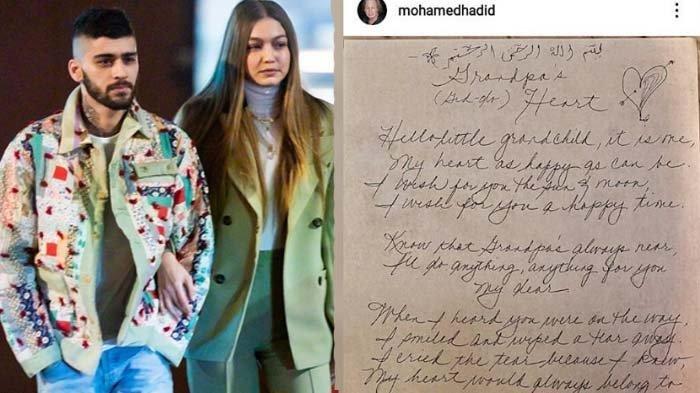 mohamedhadid
بسم الله الرحمن الرحيم
Grandpa's
(Gid-do) Heart
Hello little grandchild, it is me,
My heart as happy as can be.
I wish for you the sun & moon,
I wish for you a happy time.
Know that Grandpa's always near,
I'll do anything, anything for you
My dear
When I heard you were on the way,
I smiled and wiped a tear away.
I cried the tear because I knew,
My heart would always belong to